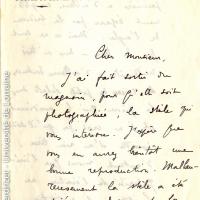 Cher Monsieur,
J'ai fait sortir du
magasin, pour qu'elle soit
photographiée, la stèle qui
vous intéresse. J'espère que
vous en aurez bientôt une
bonne reproduction. Malheu-
reusement la stèle a été
Université de Lorraine